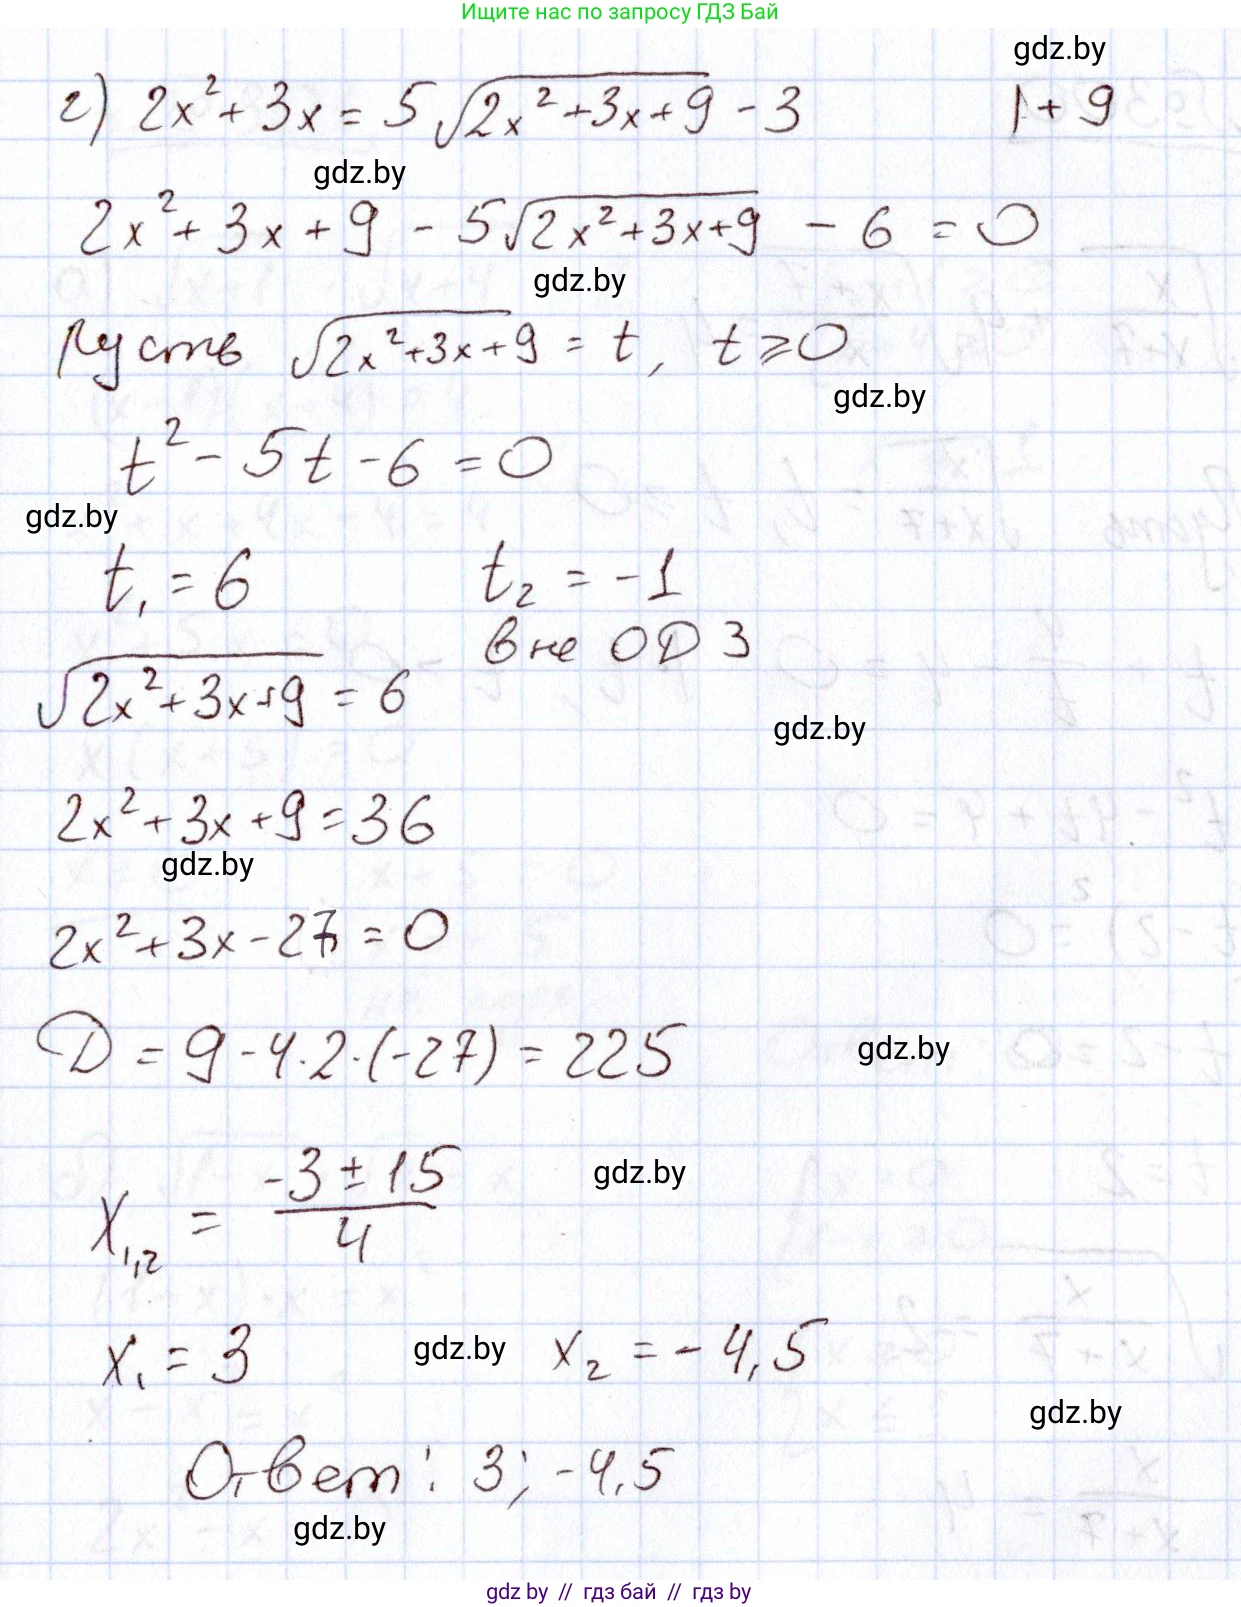 Ищите нас по запросу ГДЗ Бай
gdz.by
г) 2x²+3x = 5√(2x²+3x+9) - 3 |+9
gdz.by
2x²+3x+9 - 5√(2x²+3x+9) - 6 = 0
gdz.by
Пусть √(2x²+3x+9) = t, t ⩾ 0
gdz.by
t² - 5t - 6 = 0
gdz.by
t₁ = 6 t₂ = -1
вне ОДЗ
√(2x²+3x+9) = 6
gdz.by
2x²+3x+9 = 36
gdz.by
2x²+3x-27 = 0
D = 9 - 4·2·(-27) = 225 gdz.by
x₁,₂ = (-3 ± 15)/4 gdz.by
x₁ = 3 gdz.by x₂ = -4,5
gdz.by
Ответ: 3; -4,5
gdz.by
gdz by // гдз бай // гдз by